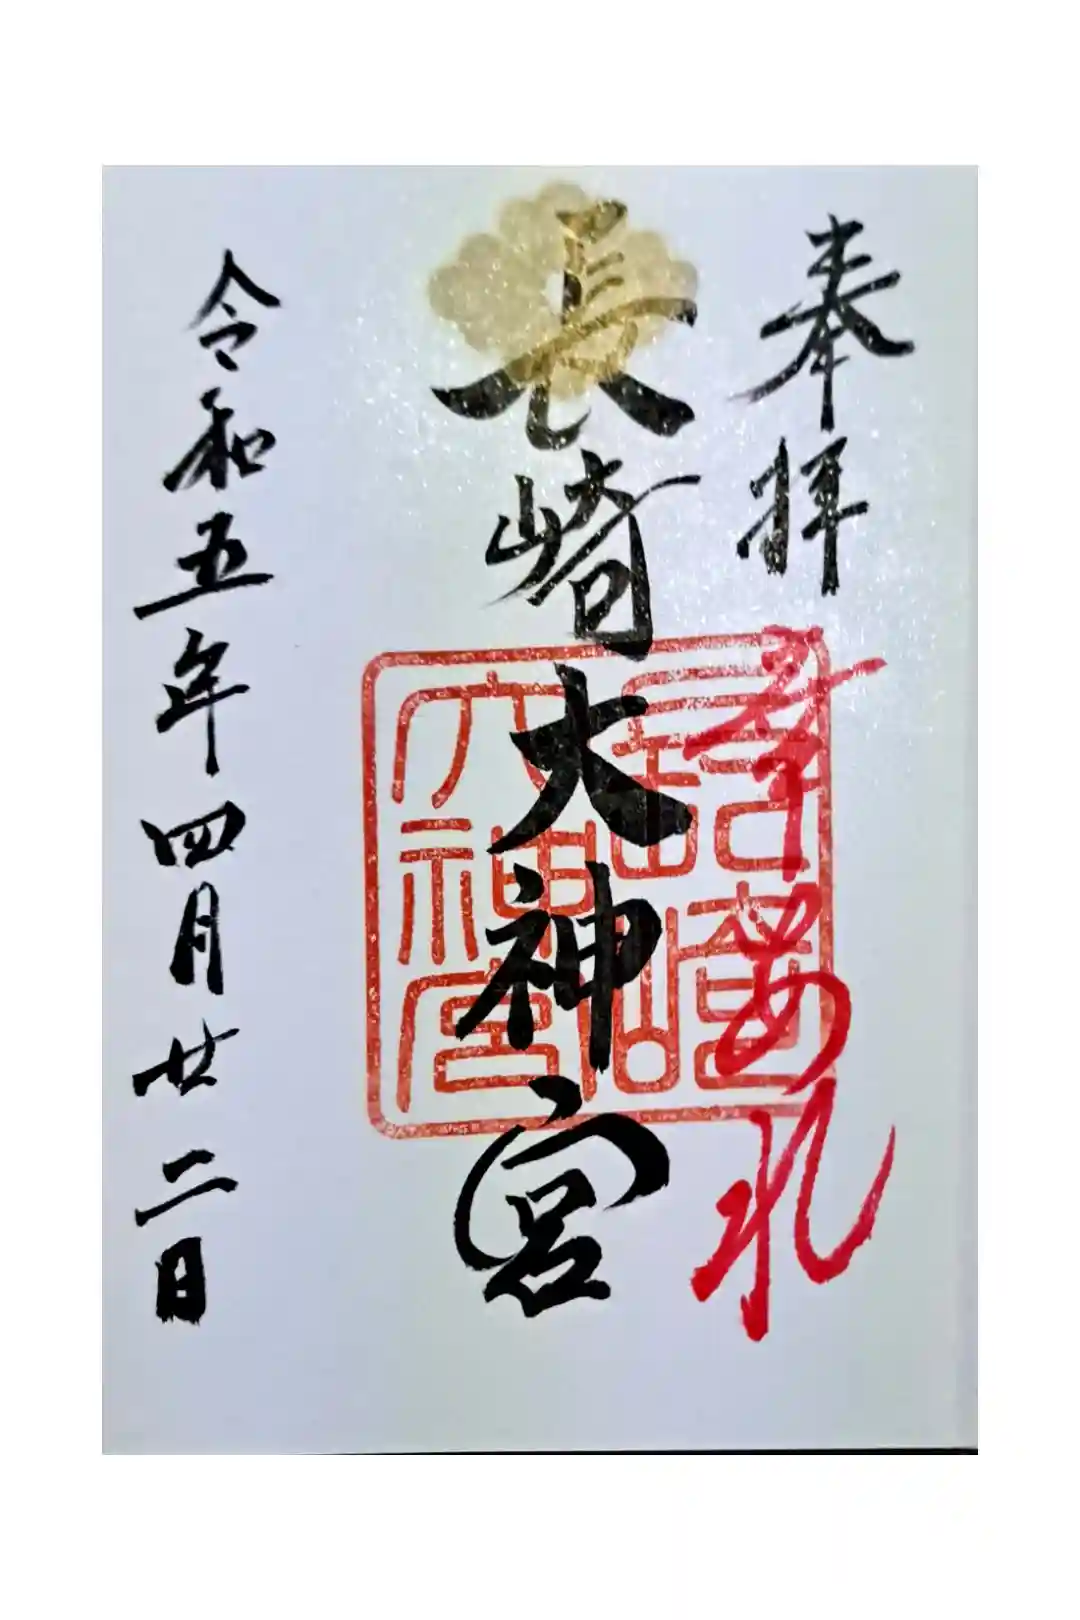 奉拝
幸あれ
長崎大神宮
大神宮
令和五年四月廿二日